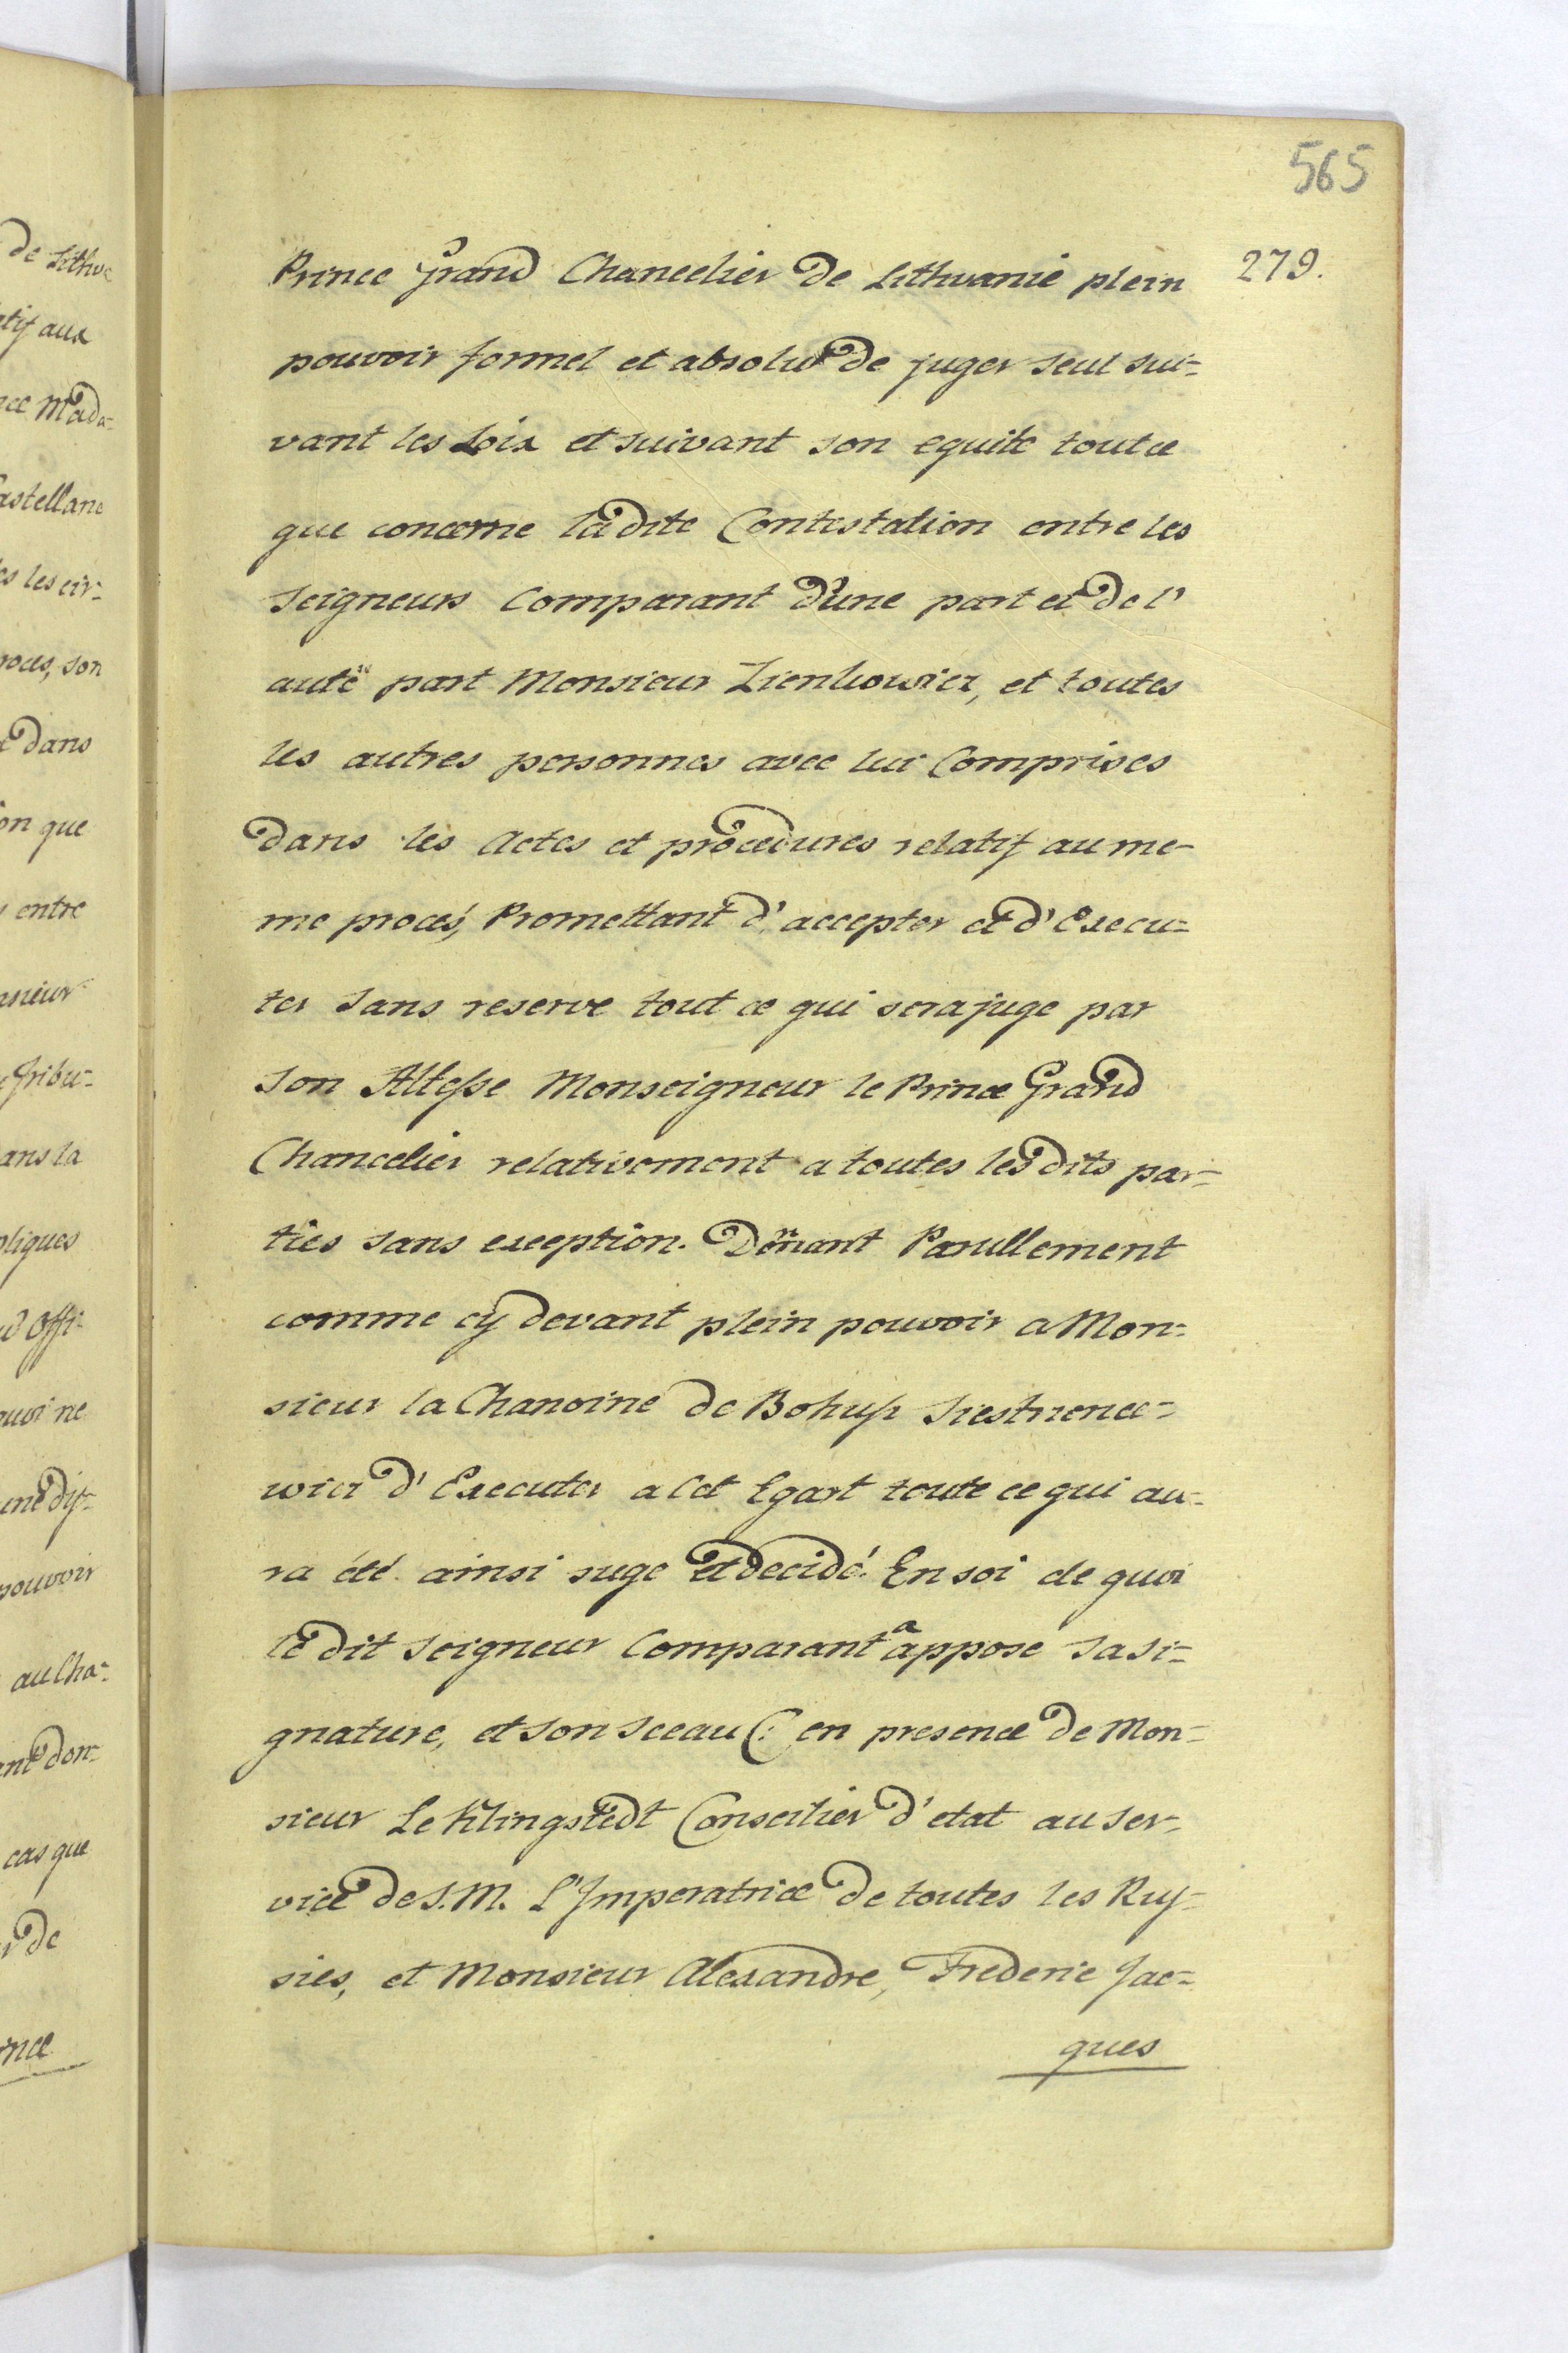 565
279.
Prince Grand Chancelier de Lithuanie plein
pouvoir formel et absolut de juger seul sui=
vant les Loix et suivant son equite tout ce
que concerne la dite Contestation entre les
Seigneurs Comparant d'une part et de l'
autre part Monsieur Zienkowicz, et toutes
les autres personnes avec lui Comprises
dans les Actes et procedures relatif au me-
me procès, Promettant d'accepter et d'Execu=
ter Sans reserve tout ce qui sera juge par
Son Altesse Monseigneur le Prince Grand
Chancelier relativement a toutes les dits par=
ties sans exception. Donnant Parullement
comme cy devant plein pouvoir a Mon=
sieur la Chanoine de Bohusz Siestrzence=
wicz d'Executer a Cet Egart toute ce qui au=
ra été ainsi juge et decidé. En foi de quoi
le dit Seigneur Comparant a appose Sa Si=
gnature, et Son Sceau (: en presence de Mon=
sieur Le Klingstedt Conseilier d'etat au Ser=
vice de S.M. L'Imperatrice de toutes les Rus=
sies, et Monsieur Alexandre, Frederic Jac=
ques